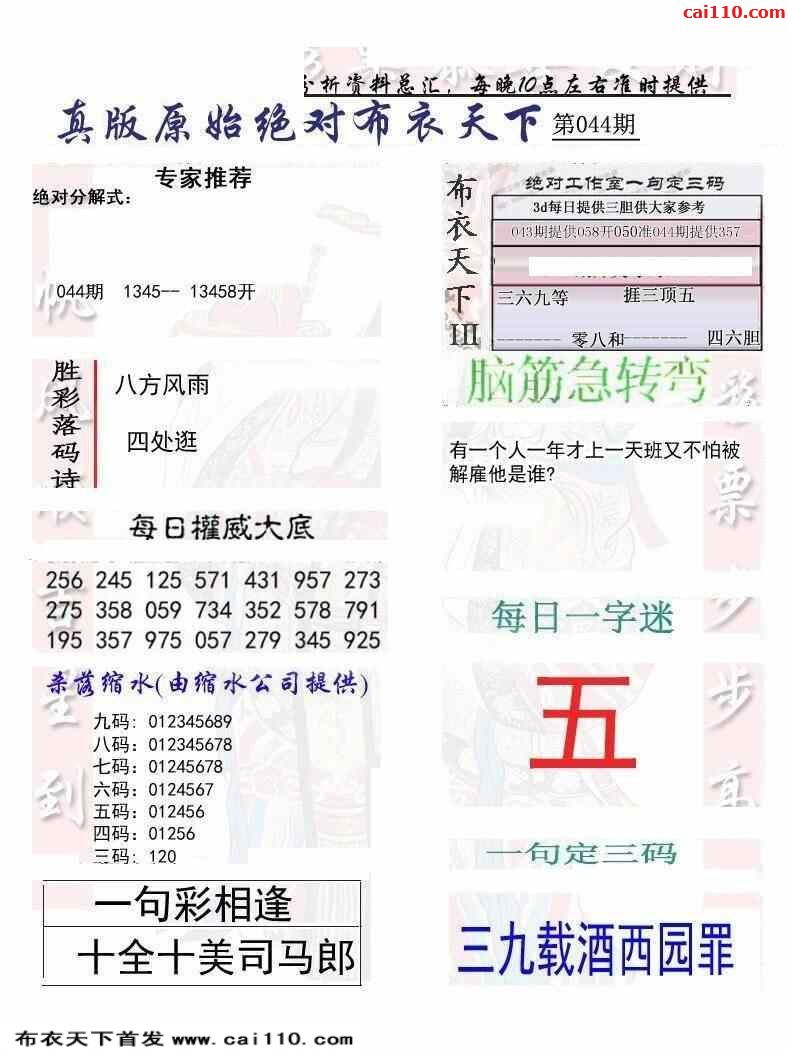 cai110.com
分析资料总汇，每晚10点左右准时提供
真版原始绝对布衣天下 第044期
专家推荐
绝对分解式：
044期 1345-- 13458开
布衣天下III
绝对工作室一句定三码
3d每日提供三胆供大家参考
043期提供058开050准044期提供357
三六九等 捱三顶五
------- 零八和------- 四六胆
胜彩落码诗
八方风雨
四处逛
脑筋急转弯
有一个人一年才上一天班又不怕被
解雇他是谁?
每日權威大底
256 245 125 571 431 957 273
275 358 059 734 352 578 791
195 357 975 057 279 345 925
每日一字迷
五
杀落缩水(由缩水公司提供)
九码: 012345689
八码：012345678
七码：01245678
六码：0124567
五码：012456
四码：01256
三码：120
一句彩相逢
十全十美司马郎
一句定三码
三九载酒西园罪
布衣天下首发 www.cai110.com